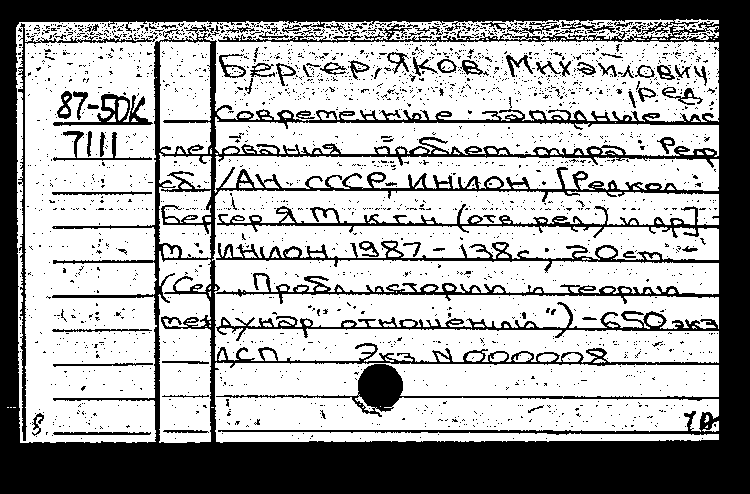 Бергер, Яков Михайлович
, ред
87-50К
Современные западные ис
7111
следования проблем мира: Реф
сб. /АН СССР, ИНИОН; [Редкол.:
Бергер Я.М, к.г.н (отв ред.) и др] -
м.: ИНИОН, 1987.- 138с.; 20см -
(Сер „Пробл истории и теории
междунар" отношений") -650 экз
ДСП. Экз. N 000008
8.